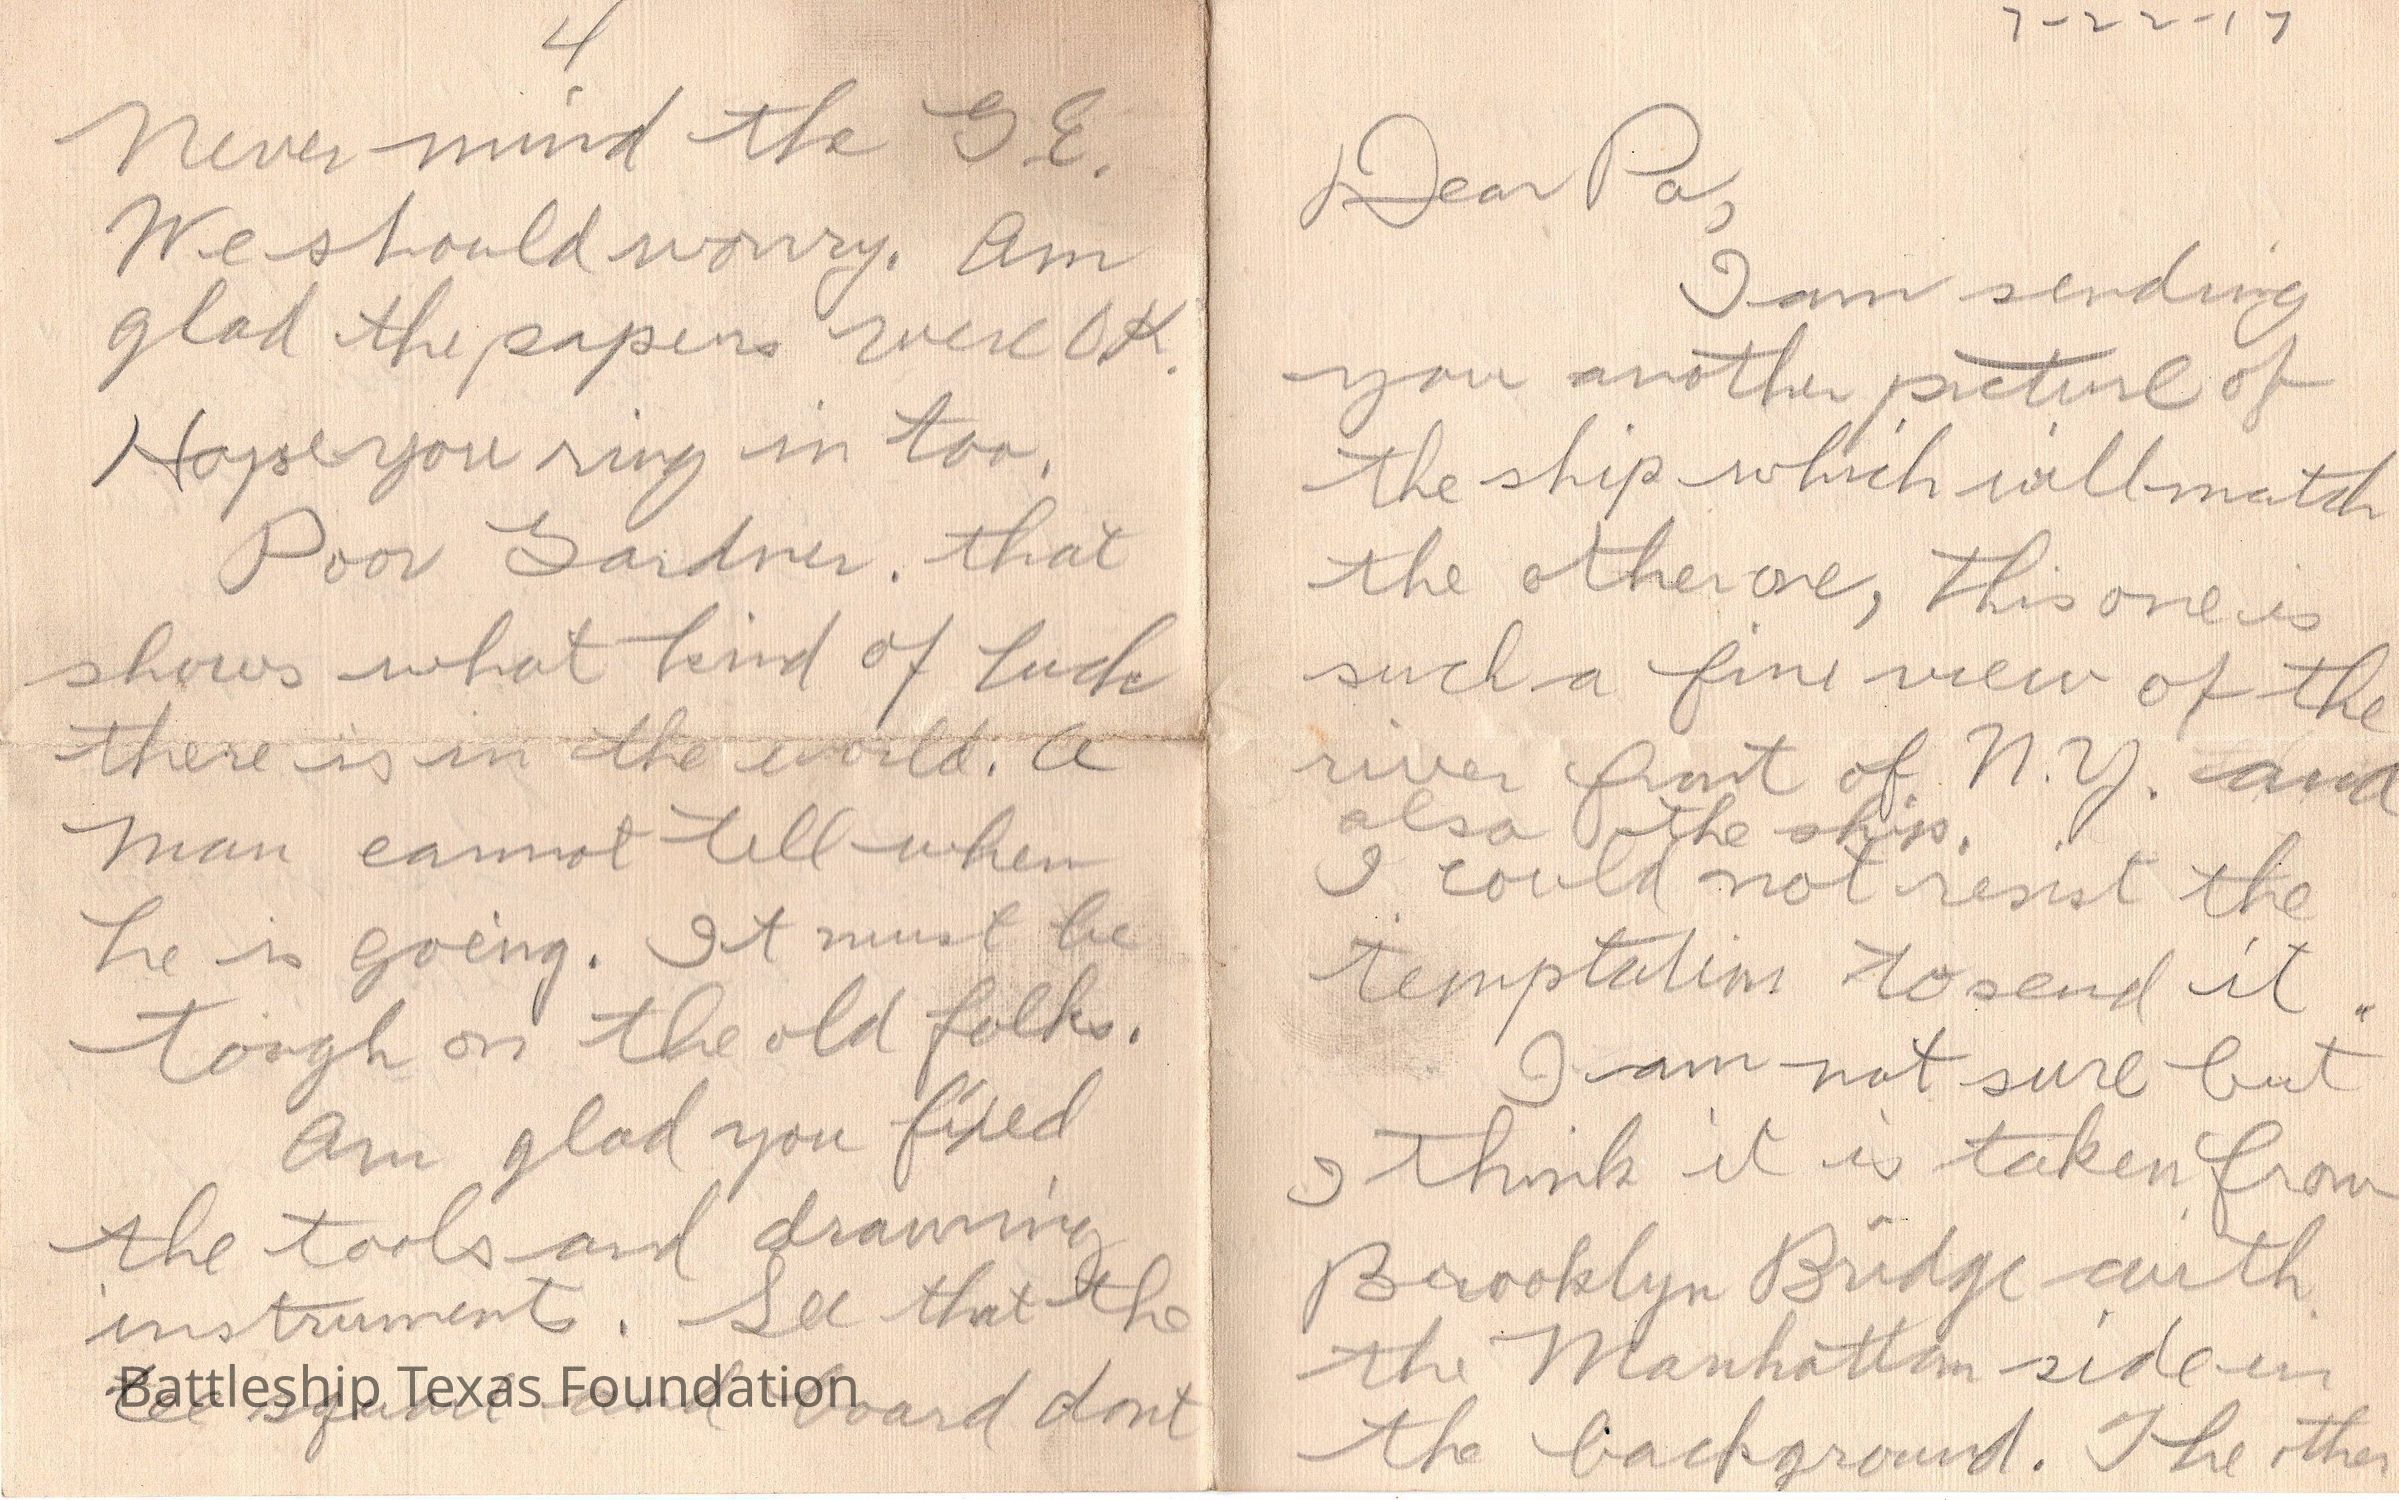 4
Never mind the G.E.
We should worry. Am
glad the papers were OK.
Hope you ring in too.
Poor Gardner. that
shows what kind of luck
there is in the world. A
man cannot tell when
he is going. It must be
tough on the old folks.
Am glad you fixed
the tools and drawing
instruments. See that the
Tee square and board dont
Battleship Texas Foundation
7-22-17
Dear Pa,
I am sending
you another picture of
the ship which will match
the other one, this one is
such a fine view of the
river front of N.Y. and
also the ship.
I could not resist the
temptation to send it.
I am not sure but
I think it is taken from
Brooklyn Bridge with
the Manhattan side in
the background. The other